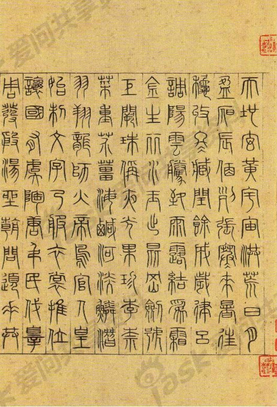 天地玄黃宇宙洪荒日月
盈昃辰宿列張寒來暑往
秋收冬藏閏餘成歲律呂
調陽雲騰致雨露結為霜
金生麗水玉出崑岡劍號
巨闕珠稱夜光果珍李柰
菜重芥薑海鹹河淡鱗潛
羽翔龍師火帝鳥官人皇
始制文字乃服衣裳推位
讓國有虞陶唐弔民伐罪
周發殷湯坐朝問道垂拱
爱问共享